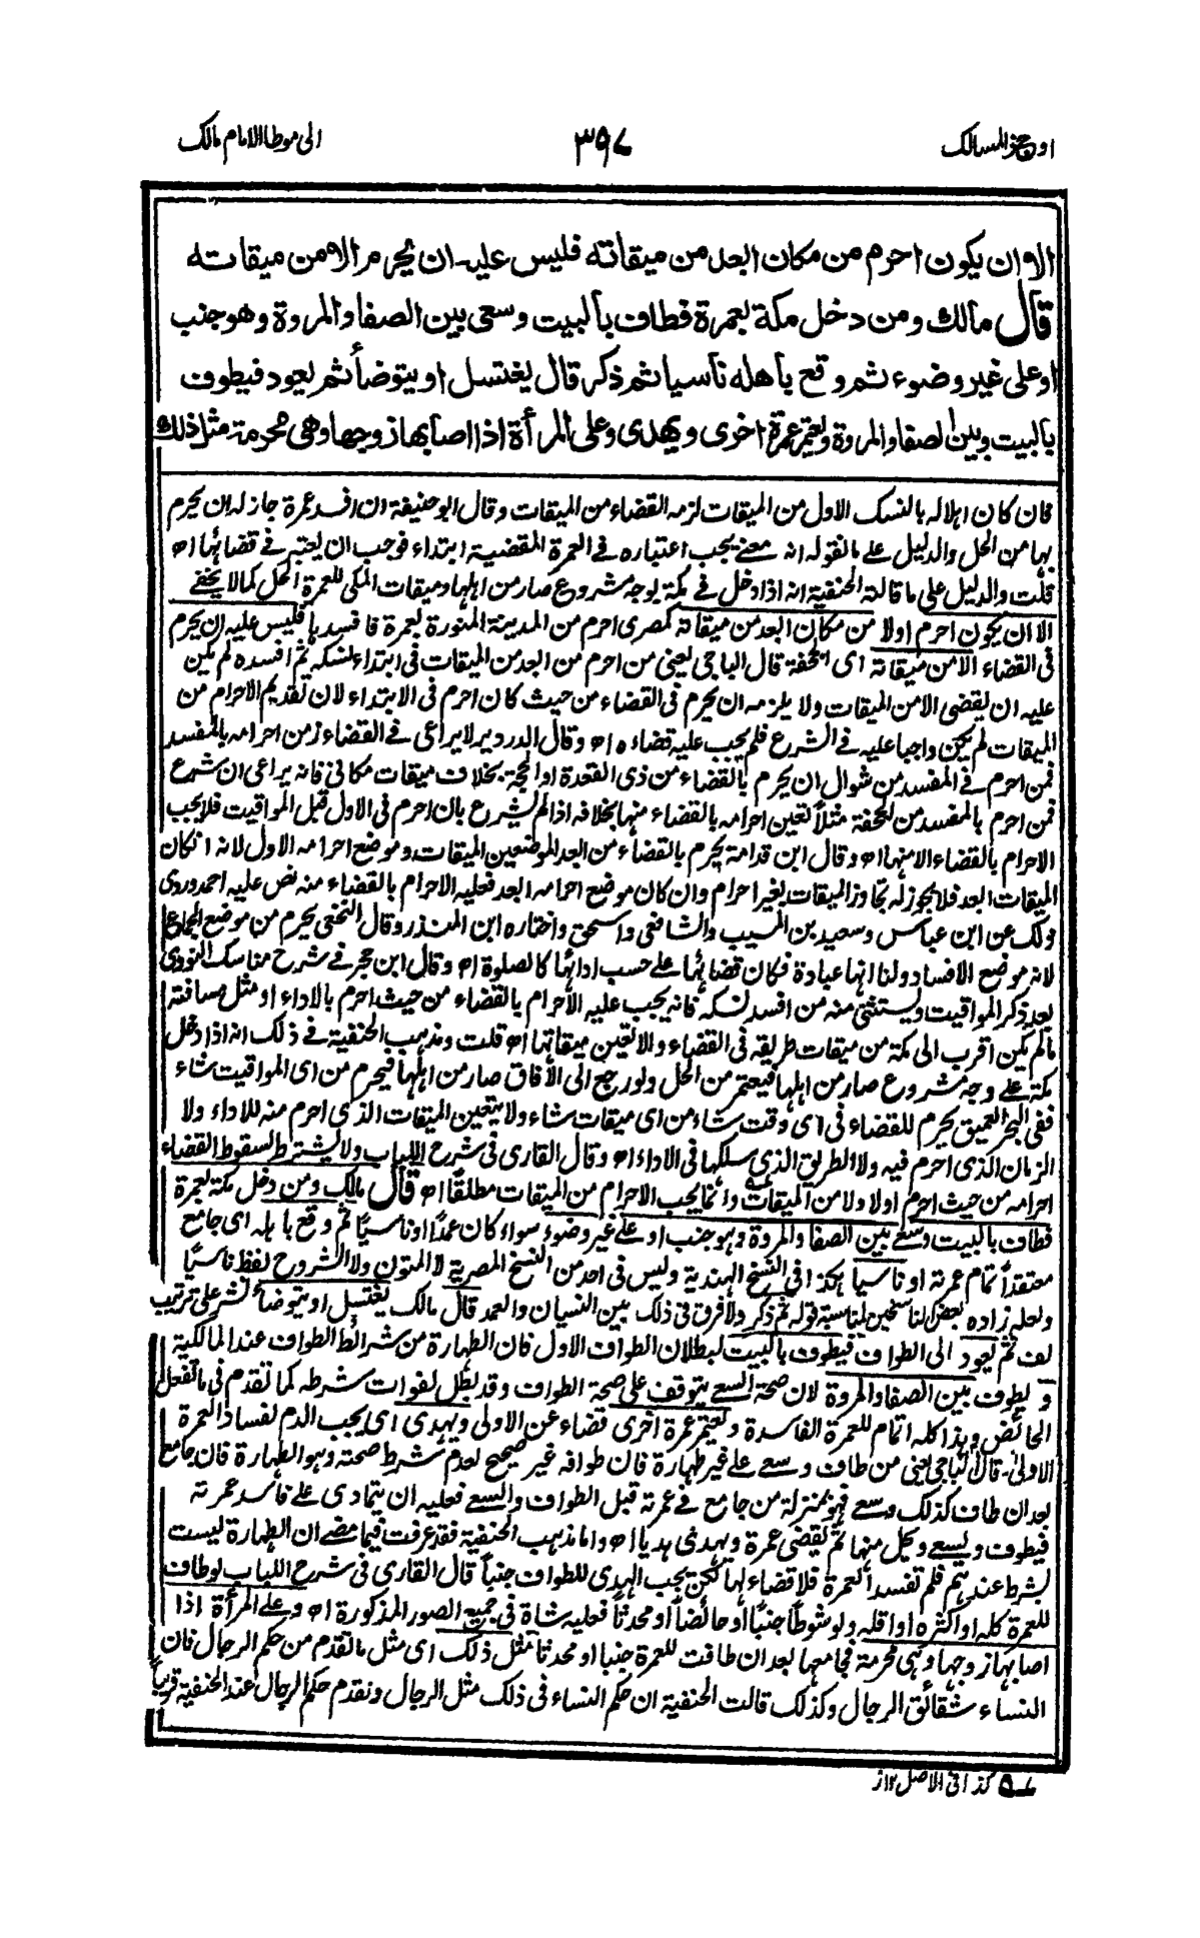 اوجز المسالك
٣٩٧
الى موطا الامام مالك
الا ان يكون احرم من مكان ابعد من ميقاته فليس عليه ان يحرم الا من ميقاته
قال مالك ومن دخل مكة بعمرة فطاف بالبيت وسعى بين الصفا والمروة وهو جنب
او على غير وضوء ثم وقع بأهله ناسيا ثم ذكر قال يغتسل او يتوضأ ثم يعود فيطوف
بالبيت وبين الصفا والمروة ويعتمر عمرة اخرى ويهدى وعلى المرأة اذا اصابها زوجها وهى محرمة مثل ذلك
فان كان اهلاله بالنسك الاول من الميقات لزمه القضاء من الميقات وقال ابو حنيفة ان افسد عمرة جاز له ان يحرم
بها من الحل والدليل على ما نقوله انه معنى يجب اعتباره فى العمرة المقضية ابتداء فوجب ان يعتبر فى قضائها اه
قلت والدليل على ما قالته الحنفية انه اذا دخل فى مكة بوجه مشروع صار من اهلها وميقات المكى للعمرة الحل كما لا يخفى
الا ان يكون احرم اولا من مكان ابعد من ميقاته كمصرى احرم من المدينة المنورة بعمرة فافسدها فليس عليه ان يحرم
فى القضاء الا من ميقاته اى الجحفة قال الباجى يعنى من احرم من ابعد من الميقات فى ابتداء نسكه ثم افسده لم يكن
عليه ان يقضى الا من الميقات ولا يلزمه ان يحرم فى القضاء من حيث كان احرم فى الابتداء لان تقديم الاحرام من
الميقات لم يكن واجبا عليه فى الشرع فلم يجب عليه قضاءه اه وقال الدردير لا يراعى فى القضاء زمن احرامه بالمفسد
فمن احرم فى المفسد من شوال ان يحرم بالقضاء من ذى القعدة او الحجة بخلاف ميقات مكانى فانه يراعى ان شرع
فمن احرم بالمفسد من الجحفة مثلا تعين احرامه بالقضاء منها بخلافه اذا لم يشرع بان احرم فى الاول قبل المواقيت فلا يجب
الاحرام بالقضاء الا منها اه وقال ابن قدامة يحرم بالقضاء من ابعد الموضعين الميقات وموضع احرامه الاول لانه ان كان
الميقات ابعد فلا يجوز له تجاوز الميقات بغير احرام وان كان موضع احرامه ابعد فعليه الاحرام بالقضاء منه نص عليه احمد وروى
ذلك عن ابن عباس وسعيد بن المسيب والشافعى واسحق واختاره ابن المنذر وقال النخعى يحرم من موضع الجماع
لانه موضع الافساد ولنا انها عبادة فكان قضائها على حسب ادائها كالصلوة اه وقال ابن حجر فى شرح مناسك النووى
بعد ذكر المواقيت ويستثنى منه من افسد نسكه فانه يجب عليه الاحرام بالقضاء من حيث احرم بالاداء او مثل مسافته
ما لم يكن اقرب الى مكة من ميقات طريقه فى القضاء والا تعين ميقاتها اه قلت ومذهب الحنفية فى ذلك انه اذا دخل
مكة على وجه مشروع صار من اهلها فيعتمر من الحل ولو رجع الى الآفاق صار من اهلها فيحرم من اى المواقيت شاء
ففى البحر العميق يحرم للقضاء فى اى وقت شاء ومن اى ميقات شاء ولا يتعين الميقات الذى احرم منه للاداء ولا
الزمان الذى احرم فيه ولا الطريق الذى سلكها فى الاداء اه وقال القارى فى شرح اللباب ولا يشترط لسقوط القضاء
احرامه من حيث احرم اولا ولا من الميقات وانما يجب الاحرام من الميقات مطلقا اه قال مالك ومن دخل مكة بعمرة
فطاف بالبيت وسعى بين الصفا والمروة وهو جنب او على غير وضوء سواء كان عمدا او ناسيا ثم وقع باهله اى جامع
معتقدا تمام عمرته او ناسيا هكذا فى النسخ الهندية وليس فى احد من النسخ المصرية لا المتون ولا الشروح لفظ ناسيا
ولعله زاده بعض الناسخين لمناسبة قوله ثم ذكر ولا فرق فى ذلك بين النسيان والعمد قال مالك يغتسل او يتوضأ نشر على ترتيب
لف ثم يعود الى الطواف فيطوف بالبيت لبطلان الطواف الاول فان الطهارة من شرائط الطواف عند المالكية
و يطوف بين الصفا والمروة لان صحة السعى يتوقف على صحة الطواف وقد بطل لفوات شرطه كما تقدم فى ما تفعل
الحائض وهذا كله اتمام للعمرة الفاسدة ويعتمر عمرة اخرى قضاء عن الاولى ويهدى اى يجب الدم لفساد العمرة
الاولى قال الباجى يعنى من طاف وسعى على غير طهارة فان طوافه غير صحيح لعدم شرط صحته وهو الطهارة فان جامع
بعد ان طاف كذلك وسعى فهو بمنزلة من جامع فى عمرته قبل الطواف والسعى فعليه ان يتمادى على فاسد عمرته
فيطوف ويسعى ويحل منها ثم يقضى عمرة ويهدى هديا اه واما مذهب الحنفية فقد عرفت فيما مضى ان الطهارة ليست
بشرط عندهم فلم تفسد العمرة فلا قضاء لها لكن يجب الهدى للطواف جنبا قال القارى فى شرح اللباب لو طاف
للعمرة كله او اكثره او اقله ولو شوطا جنبا او حائضا او محدثا فعليه شاة فى جميع الصور المذكورة اه وعلى المرأة اذا
اصابها زوجها وهى محرمة فجامعها بعد ان طافت للعمرة جنبا او محدثا مثل ذلك اى مثل ما تقدم من حكم الرجال فان
النساء شقائق الرجال وكذلك قالت الحنفية ان حكم النساء فى ذلك مثل الرجال وتقدم حكم الرجال عند الحنفية قريبا
كذا فى الاصل ١٢ ز